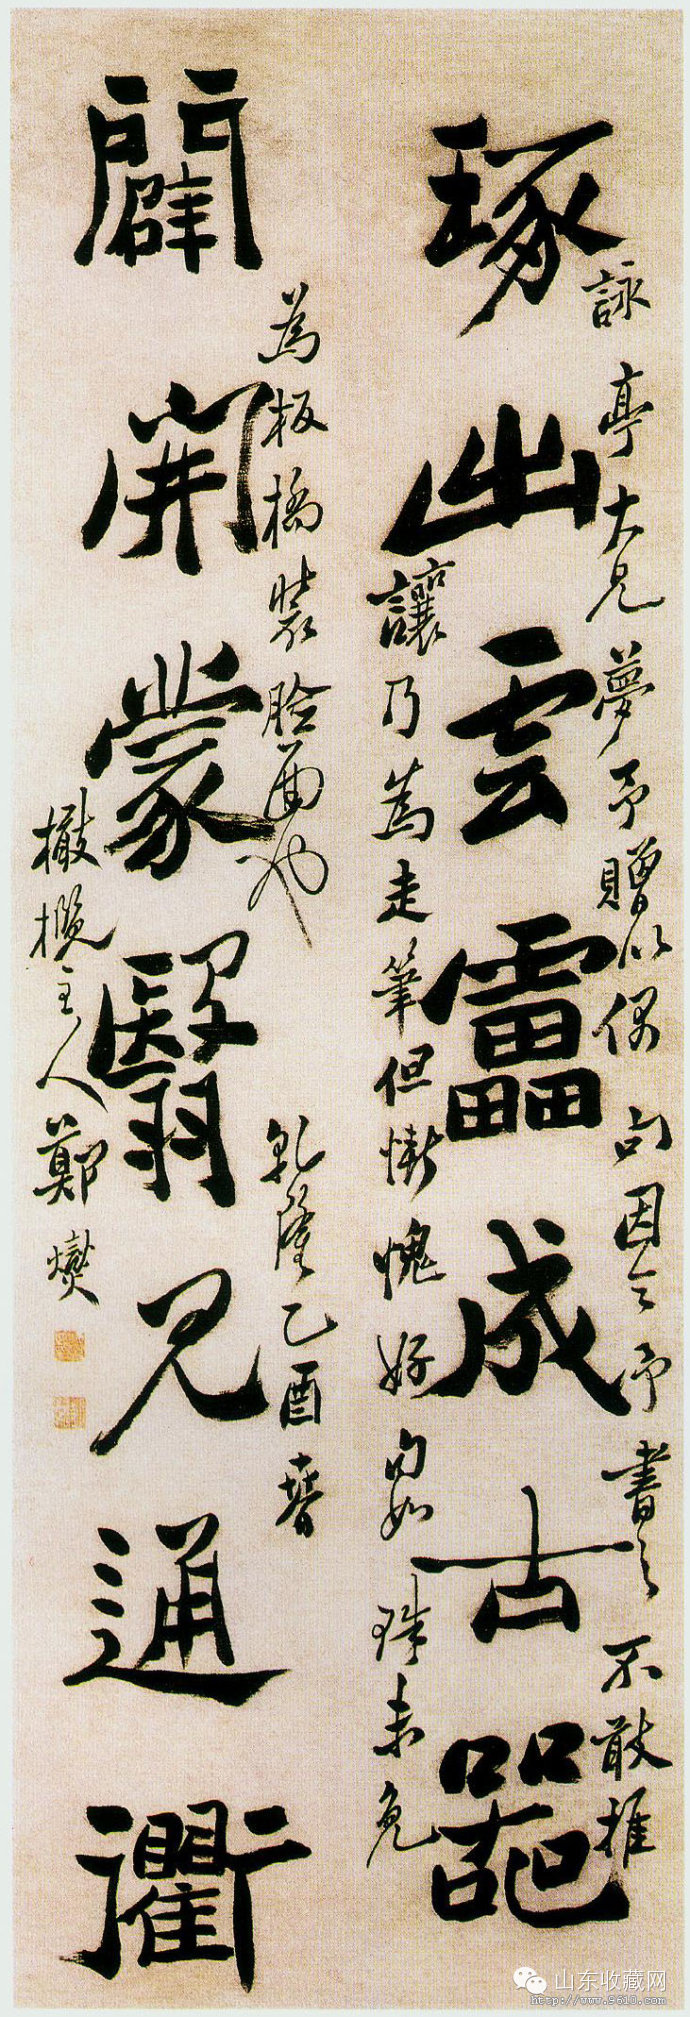 琢出雲雷成古器
詠亭大兄夢予贈以偶句因令予書之不敢推
讓乃為走筆但慚愧好句如珠未免
為板橋裝臉面也
乾隆乙酉春
闢開蒙翳見通衢
橄欖主人鄭燮
山东收藏网
http://www.9610.com